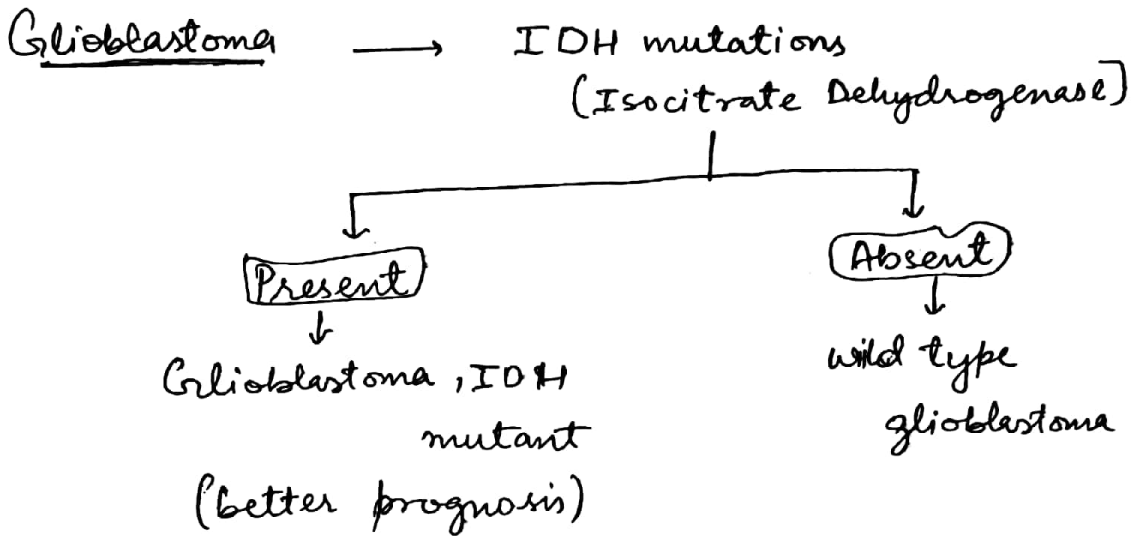 Glioblastoma → IDH mutations
(Isocitrate Dehydrogenase]
Present
Absent
Glioblastoma, IDH
mutant
(better prognosis)
wild type
glioblastoma